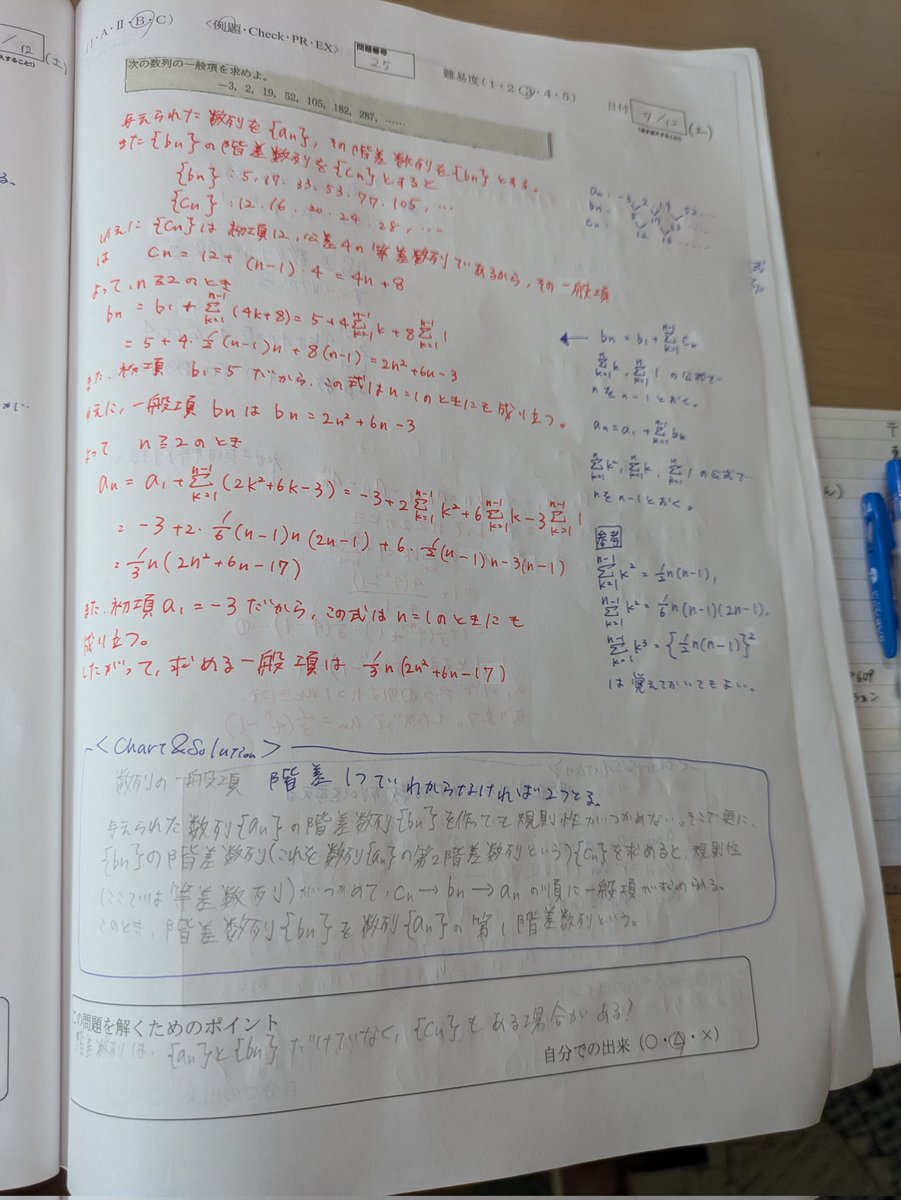 12 (土)
(Ⅰ・A・Ⅱ・B・C)
<例題・Check・PR・EX>
問題番号
25
難易度(1・2・3・4・5)
日付
9/12
(土)
次の数列の一般項を求めよ。
-3, 2, 19, 52, 105, 182, 287, ……
与えられた数列を{an}, その階差数列を{bn}とする。
また{bn}の階差数列を{cn}とすると
{bn}:5, 17, 33, 53, 77, 105, …
{cn}:12, 16, 20, 24, 28, …
ゆえに{cn}は初項12, 公差4の等差数列であるから, その一般項
は cn = 12 + (n-1)・4 = 4n+8
よって, n≧2のとき
bn = b1 + Σ[k=1, n-1](4k+8) = 5+4Σ[k=1, n-1]k + 8Σ[k=1, n-1]1
= 5+4・1/2(n-1)n + 8(n-1) = 2n²+6n-3
また, 初項 b1=5 だから, この式はn=1のときにも成り立つ。
ゆえに, 一般項 bn は bn = 2n²+6n-3
よって n≧2のとき
an = a1 + Σ[k=1, n-1](2k²+6k-3) = -3+2Σ[k=1, n-1]k²+6Σ[k=1, n-1]k-3Σ[k=1, n-1]1
= -3+2・1/6(n-1)n(2n-1)+6・1/2(n-1)n-3(n-1)
= 1/3n(2n²+6n-17)
また, 初項a1=-3だから, この式はn=1のときにも
成り立つ。
したがって, 求める一般項は 1/3n(2n²+6n-17)
an: -3 2 19 52 …
bn: 5 17 33 …
cn: 12 16 …
← bn = b1 + Σ[k=1, n-1]ck
Σ[k=1, n]k, Σ[k=1, n]1 の公式で
nをn-1とおく。
an = a1 + Σ[k=1, n-1]bk
Σ[k=1, n]k², Σ[k=1, n]k, Σ[k=1, n]1 の公式で
nをn-1とおく。
参考
Σ[k=1, n-1]k² = 1/2n(n-1),
Σ[k=1, n-1]k² = 1/6n(n-1)(2n-1),
Σ[k=1, n-1]k³ = {1/2n(n-1)}²
は覚えておいてもよい。
<Chart&Solution>
数列の一般項 階差1つでわからなければ2つとる。
与えられた数列{an}の階差数列{bn}を作っても規則性がつかめない。そこで更に,
{bn}の階差数列(これを数列{an}の第2階差数列という){cn}を求めると, 規則性
(ここでは等差数列)がつかめて, cn→bn→anの順に一般項が求められる。
このとき, 階差数列{bn}を数列{an}の第1階差数列という。
この問題を解くためのポイント
階差数列は, {an}と{bn}だけでなく, {cn}もある場合がある!
自分での出来(○・△・×)